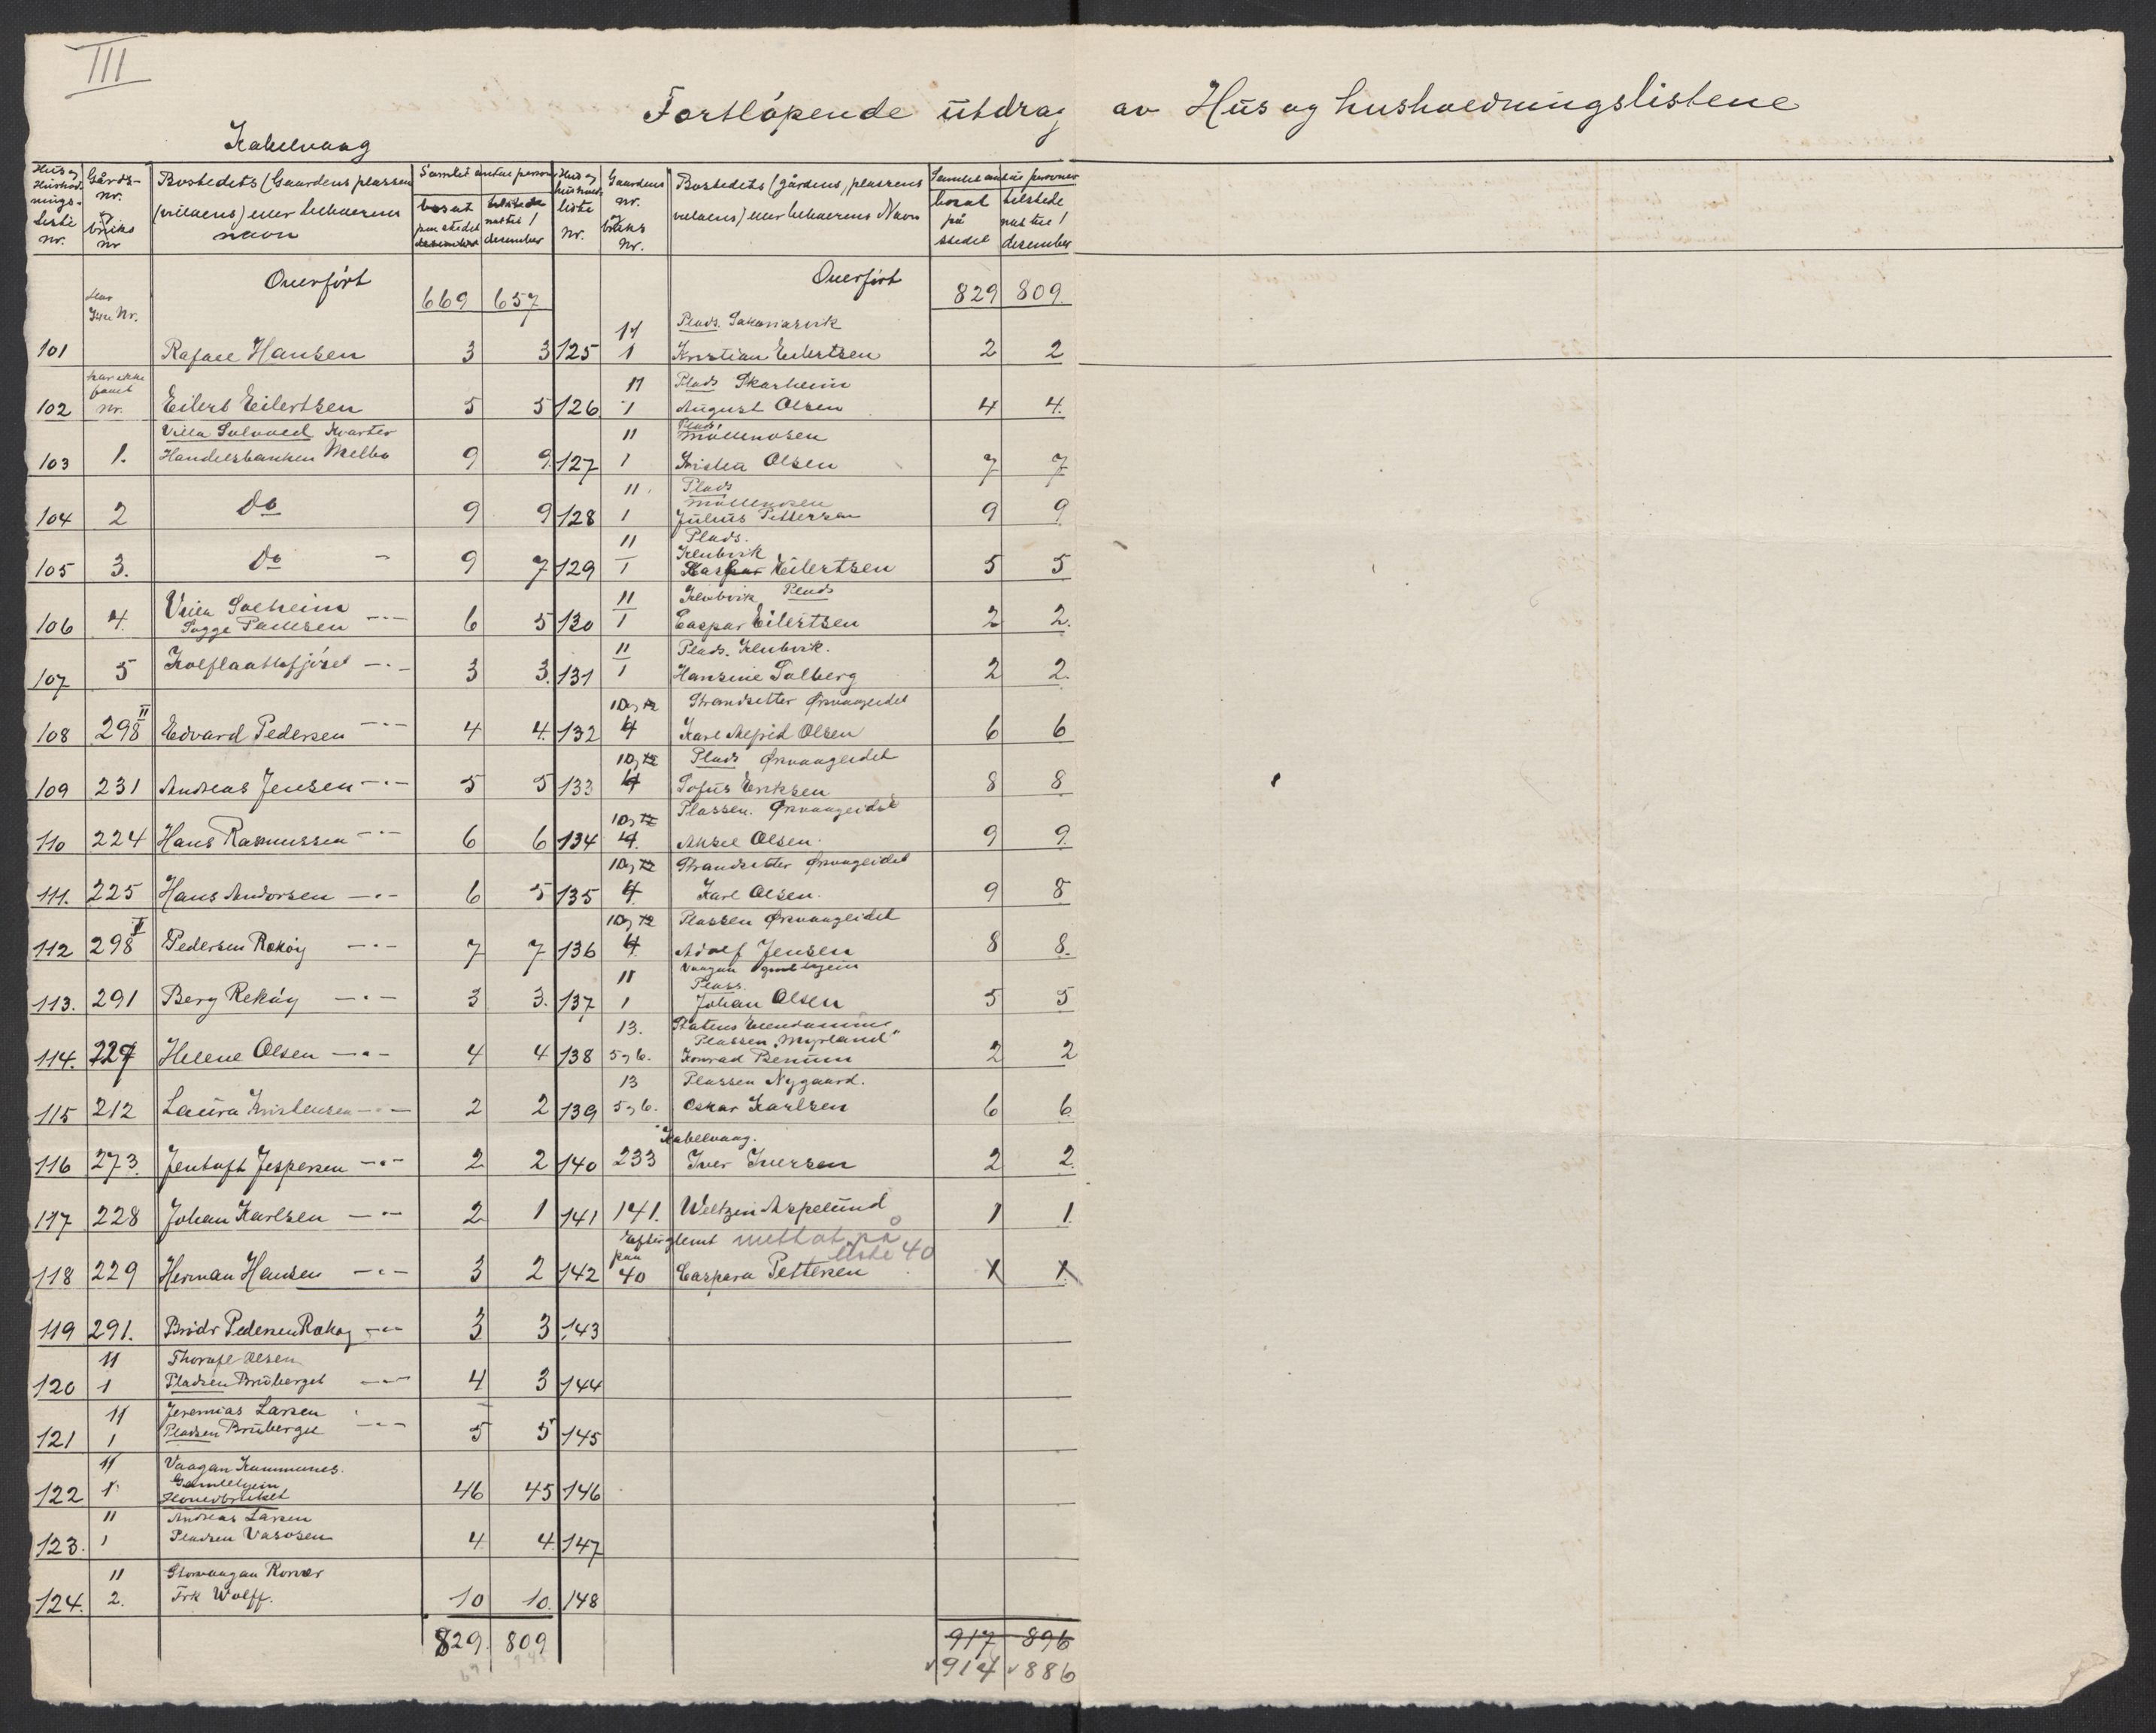 III
Fortløpende utdrag av Hus og husholdningslistene
Kabelvaag
Hus og Hushold-nings-liste nr. | Gårds-nr. og bruks nr | Bostedets (Gaardens plassen (villaens) eller beboerens navn | Samlet antal personer bosat paa stedet | tilstede nat til 1 desember | Hus og hushold. liste nr. | Gaardens nr. og bruks nr. | Bostedets (gårdens, plassens villaens) eller beboerens Navn | Samlet antal personer bosat på stedet | tilstede nat til 1 desember
Overført 669 657 Overført 829 809
101 Har ikke Nr. Rafael Hansen 3 3
125 11 1 Plads. Sakariasvik Kristian Eilertsen 2 2
102 har ikke faaet nr. Eilert Eilertsen 5 5
126 11 1 Plads Skarheim August Olsen 4 4.
103 1. Villa Solvold Kvarter Handelsbanken Melbo 9 9.
127 11 1 Plads. Møllnosen Kristian Olsen 7 7
104 2 Do 9 9
128 11. 1 Plads Møllnosen Julius Pettersen 9 9
105 3. Do - 9 7
129 11 1 Plads. Klubvik Kaspar Eilertsen 5 5
106 4. Villa Solheim Sogge Paulsen 6 5
130 11 1 Klubvik Plads Caspar Eilertsen 2 2.
107 5 Kolflaathfjøset 3 3.
131 11 1 Plads. Klubvik. Hansine Solberg 2 2.
108 298 II Edvard Pedersen 4 4.
132 10 og 12 4 Strandsitter Ørsvaageidet Karl Alfrid Olsen 6 6
109 231 Andreas Jensen 5 5
133 10 og 12 4 Plads Ørsvaageidet Sofus Eriksen 8 8
110 224 Hans Rasmussen 6 6
134 10 og 12 4. Plassen. Ørsvaageidet Aksel Olsen. 9 9.
111. 225 Hans Andorsen 6 5
135 10 og 12 4. Strandsitter Ørsvaageidet Karl Olsen. 9 8
112 298 I Pedersen Rekøy 7 7
136 10 og 12 4. Plassen Ørsvaageidet Adolf Jensen 8 8.
113. 291 Berg Rekøy 3 3.
137 11 1 Vaagan gmlehjem Plass. Johan Olsen 5 5
114. 227 Helene Olsen 4 4
138 13. 5 og 6. Statens Eiendomme Plassen "Myrland" Konrad Benum 2 2
115 212 Laura Kristensen 2 2
139 13 5 og 6. Plassen Nygaard. Oskar Karlsen 6 6.
116 273. Jentoft Jespersen 2 2
140 233 Kabelvaag. Iver Iversen 2 2.
117 228 Johan Karlsen 2 1
141 141. Weltzin Aspelund 1 1.
118 229 Herman Hansen 3 2
142 Efterglemt paa 40 medtat på liste 40 Caspara Pettersen X X
119 291. Brødr Pedersen Rekøy 3 3 143
120 11 1 Thoralf Olsen Pladsen Brüberget 4 3 144
121 11 1 Jeremias Larsen Pladsen Brüberget 5 5 145
122 11 1 Vaagan Kommunes. Gamlehjem Hovedbruket 46 45 146
123. 11 1 Andreas Larsen Pladsen Vasosen 4 4. 147
124. 11 2. Storvaagan Rorvær Frk Wolff. 10 10. 148
829. 809 917 896
914 886